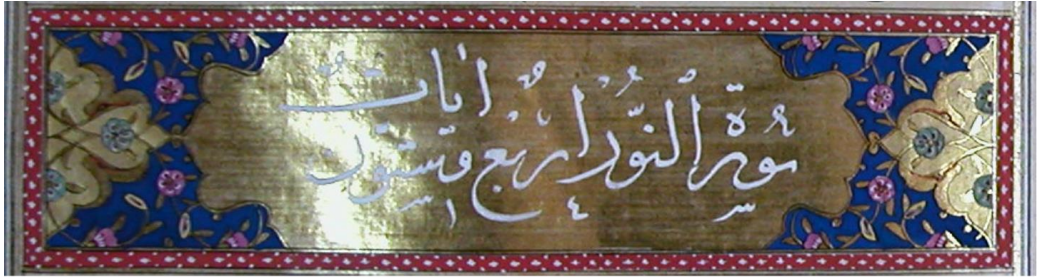 سورة النور اربع وستون
ايات